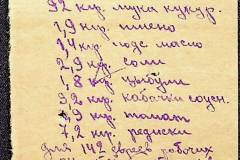 92 клр. мука кукур.
1,9 клр. пшено
1,4 клр. подс масло
2,9 клр. соли
1,8 клр. цыбули
9,2 клр. кабачки соусн.
,9 клр. томат
7,2 клр. редиски
для 142 евреев рабочих